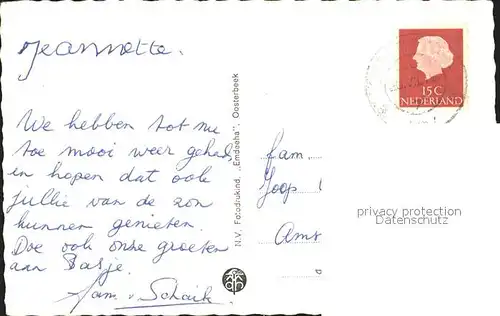 Jeannette.
We hebben tot nu
toe mooi weer gehad
en hopen dat ook
jullie van de zon
kunnen genieten.
Doe ook onze groeten
aan Basje.
Fam v Schaik
N.V. Fotodrukind. „Emdeeha", Oosterbeek
15 C
NEDERLAND
fam.
Joop
Ams
privacy protection
Datenschutz